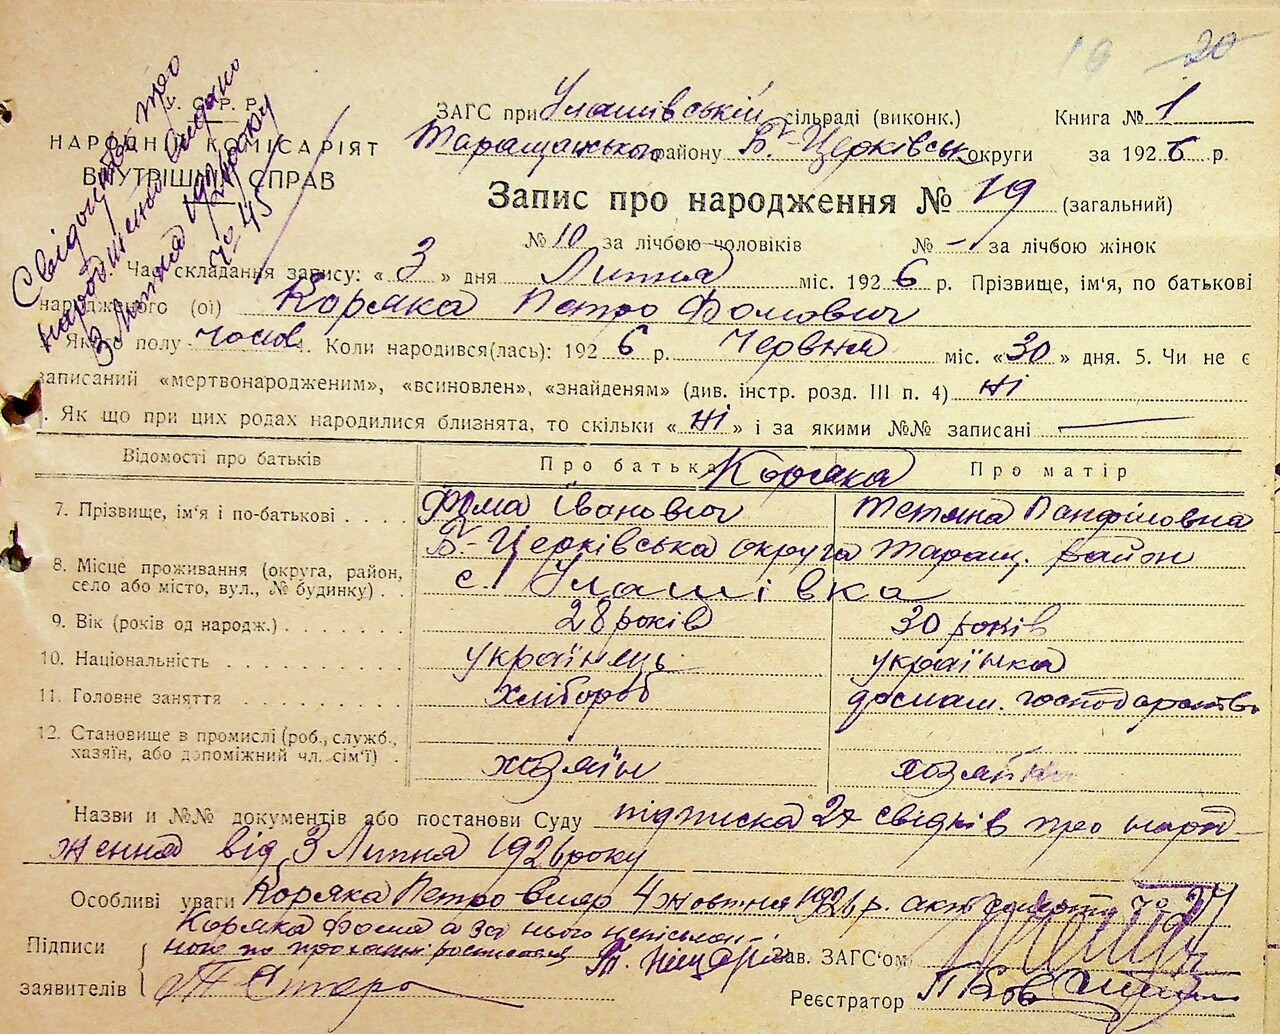 19 20
Свідоцтво про
народження видано
3 Липня 1926 року
№ 45
У. С. Р. Р.
НАРОДНІЙ КОМІСАРІЯТ
ВНУТРІШНІХ СПРАВ
ЗАГС при Улашівській сільраді (виконк.) Книга № 1
Таращанського району Б.-Церківськ округи за 1926 р.
Запис про народження № 19 (загальний)
№ 10 за лічбою чоловіків № — за лічбою жінок
Час складання запису: « 3 » дня Липня міс. 1926 р. Прізвище, ім'я, по батькові
народженого (ої) Коряка Петро Фомович
Якого полу чолов. 4. Коли народився(лась): 1926 р. Червня міс. «30» дня. 5. Чи не є
записаний «мертвонародженим», «всиновлен», «знайденям» (див. інстр. розд. III п. 4) ні
. Як що при цих родах народилися близнята, то скільки « ні » і за якими №№ записані —
Відомості про батьків Про батька Коряка Про матір
7. Прізвище, ім'я і по-батькові Фома Іванович Тетяна Панфіловна
Б.-Церківська округа Таращ. район
8. Місце проживання (округа, район,
село або місто, вул., № будинку) с. Улашівка
9. Вік (років од народж.) 28 років 30 років
10. Національність українець українка
11. Головне заняття хлібороб домаш. господарство
12. Становище в промислі (роб., служб.,
хазяїн, або допоміжний чл. сім'ї) хозяїн хозяйка
Назви и №№ документів або постанови Суду підписка 2х свідків про народ
ження від 3 Липня 1926 року
Особливі уваги Коряка Петро вмер 4 жовтня 1926 р. акт смерти № 24
Коряка Фома а за нього неписьмен-
Підписи ного по проханні розписався
Зав. ЗАГС'ом
заявителів
Реєстратор